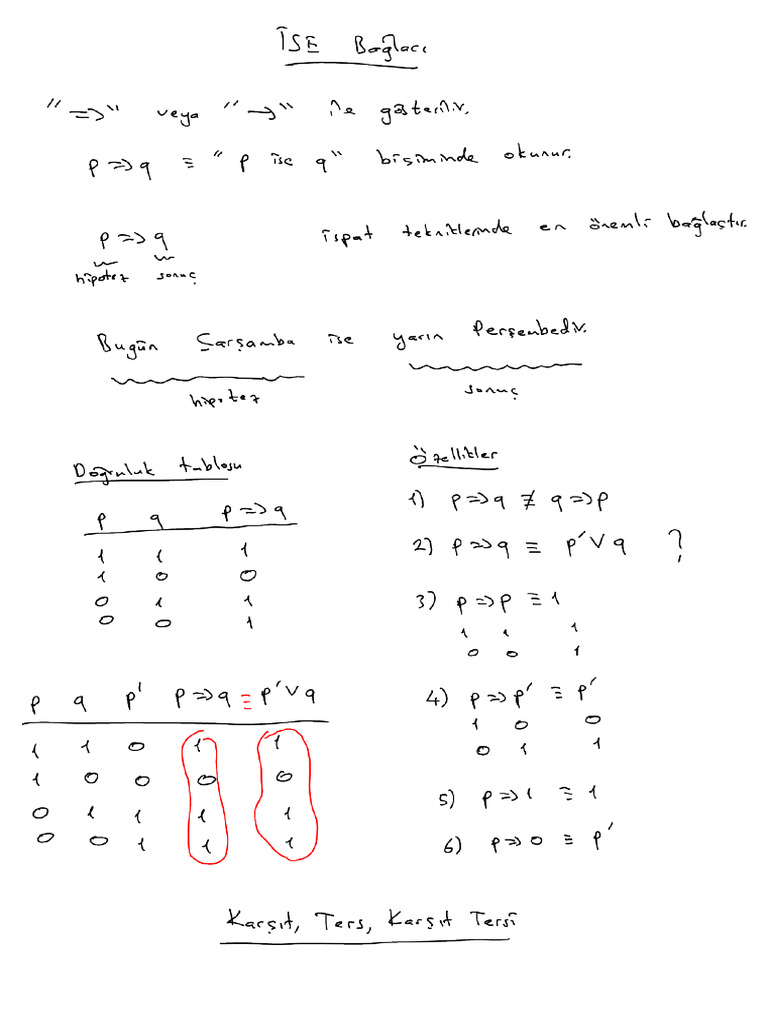 İSE Bağlacı
"=>" veya "→" ile gösterilir.
p=>q ≡ "p ise q" biçiminde okunur.
p=>q ispat tekniklerinde en önemli bağlaçtır.
hipotez sonuç
Bugün Çarşamba ise yarın Perşembedir.
hipotez sonuç
Doğruluk tablosu
p q p=>q
1 1 1
1 0 0
0 1 1
0 0 1
Özellikler
1) p=>q ≢ q=>p
2) p=>q ≡ p'∨q ?
3) p=>p ≡ 1
1 1 1
0 0 1
4) p=>p' ≡ p'
1 0 0
0 1 1
5) p=>1 ≡ 1
6) p=>0 ≡ p'
p q p' p=>q ≡ p'∨q
1 1 0 1 1
1 0 0 0 0
0 1 1 1 1
0 0 1 1 1
Karşıt, Ters, Karşıt Tersi